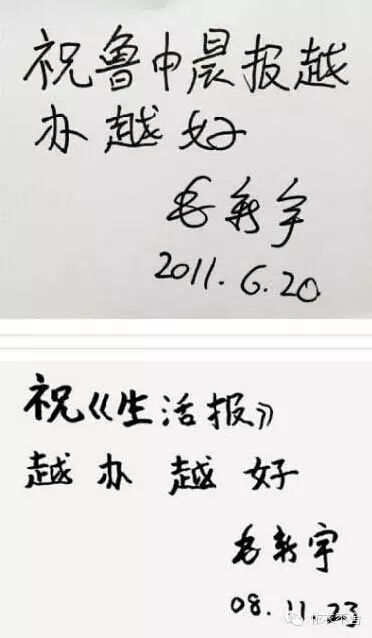 祝鲁中晨报越
办越好
毛新宇
2011.6.20
祝《生活报》
越办越好
毛新宇
08.11.23